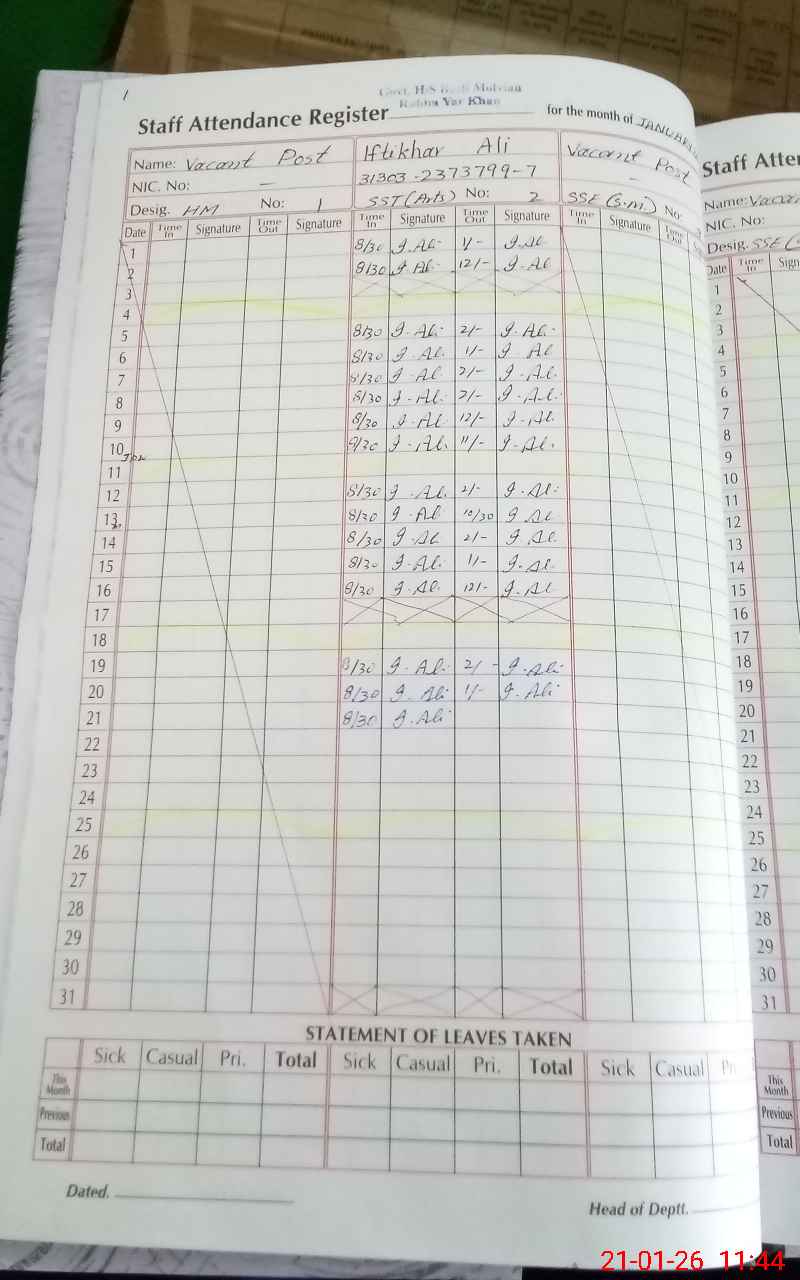 1
Govt. H/S
Rahim Yar Khan
Staff Attendance Register for the month of JANUARY
Name: Vacant Post Iftikhar Ali Vacant Post
NIC. No: - 31303-2373799-7 -
Desig. HM No: 1 SST (Arts) No: 2 SSE (S.m) No:
Date Time In Signature Time Out Signature Time In Signature Time Out Signature Time In Signature Time Out
1 8/30 I. Al. 1/- I. Al
2 8/30 I. Al. 12/- I. Al
3
4
5 8/30 I. Al. 2/- I. Al.
6 8/30 I. Al. 1/- I. Al
7 8/30 I. Al 2/- I. Al.
8 8/30 I. Al. 2/- I. Al.
9 8/30 I. Al 12/- I. Al.
10 8/30 I. Al. 11/- I. Al.
11
12 8/30 I. Al. 2/- I. Al.
13 8/30 I. Al 10/30 I. Al
14 8/30 I. Al 2/- I. Al.
15 8/30 I. Al. 1/- I. Al.
16 8/30 I. Al. 12/- I. Al
17
18
19 8/30 I. Ali 2/- I. Ali
20 8/30 I. Ali 1/- I. Ali
21 8/30 I. Ali
22
23
24
25
26
27
28
29
30
31
STATEMENT OF LEAVES TAKEN
Sick Casual Pri. Total Sick Casual Pri. Total Sick Casual
This Month
Previous
Total
Dated. Head of Deptt.
Staff Atte
Name: Vacan
NIC. No:
Desig. SSE
Date Time In Sign
1
2
3
4
5
6
7
8
9
10
11
12
13
14
15
16
17
18
19
20
21
22
23
24
25
26
27
28
29
30
31
This Month
Previous
Total
21-01-26 11:44